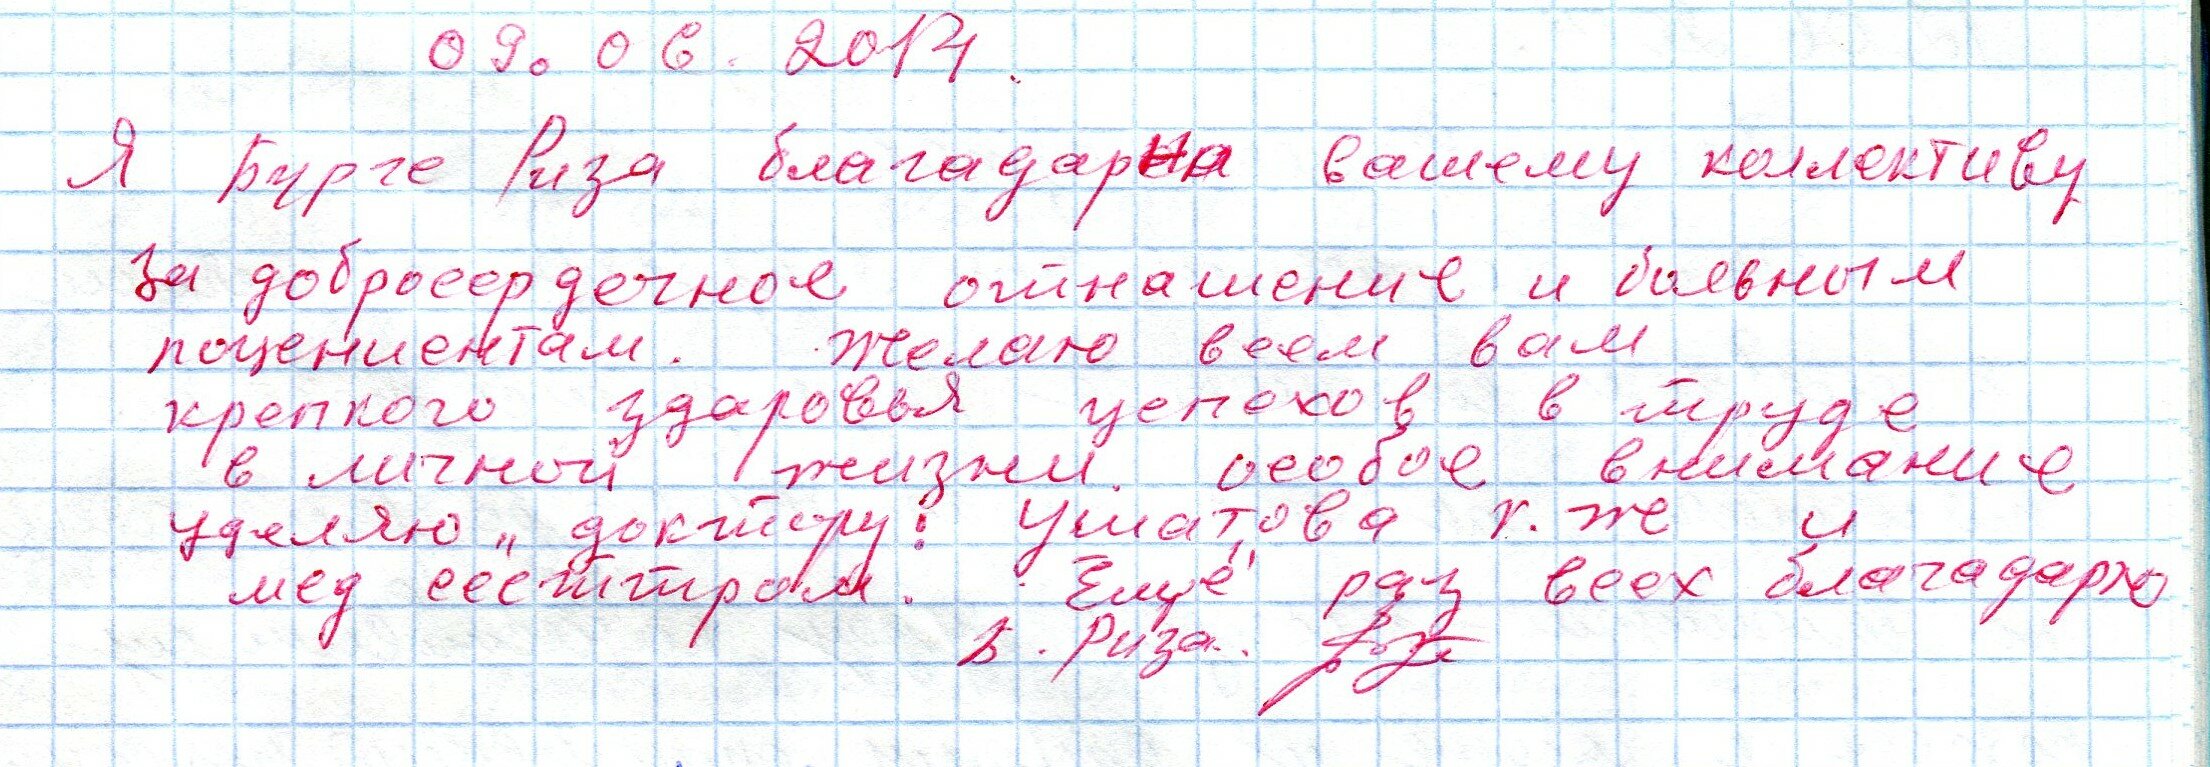 09.06.2014.
Я Бурге Риза благадарна вашему коллективу
за добросердечное отнашение и болевным
поценниентам. Желаю всем вам
крепкого здаровья успехов в труде
в личной жизни. особое внимание
уделяю „ доктору: Уматова к. же и
мед сесттрам. Ещё раз всех благадарю
Б. Риза.